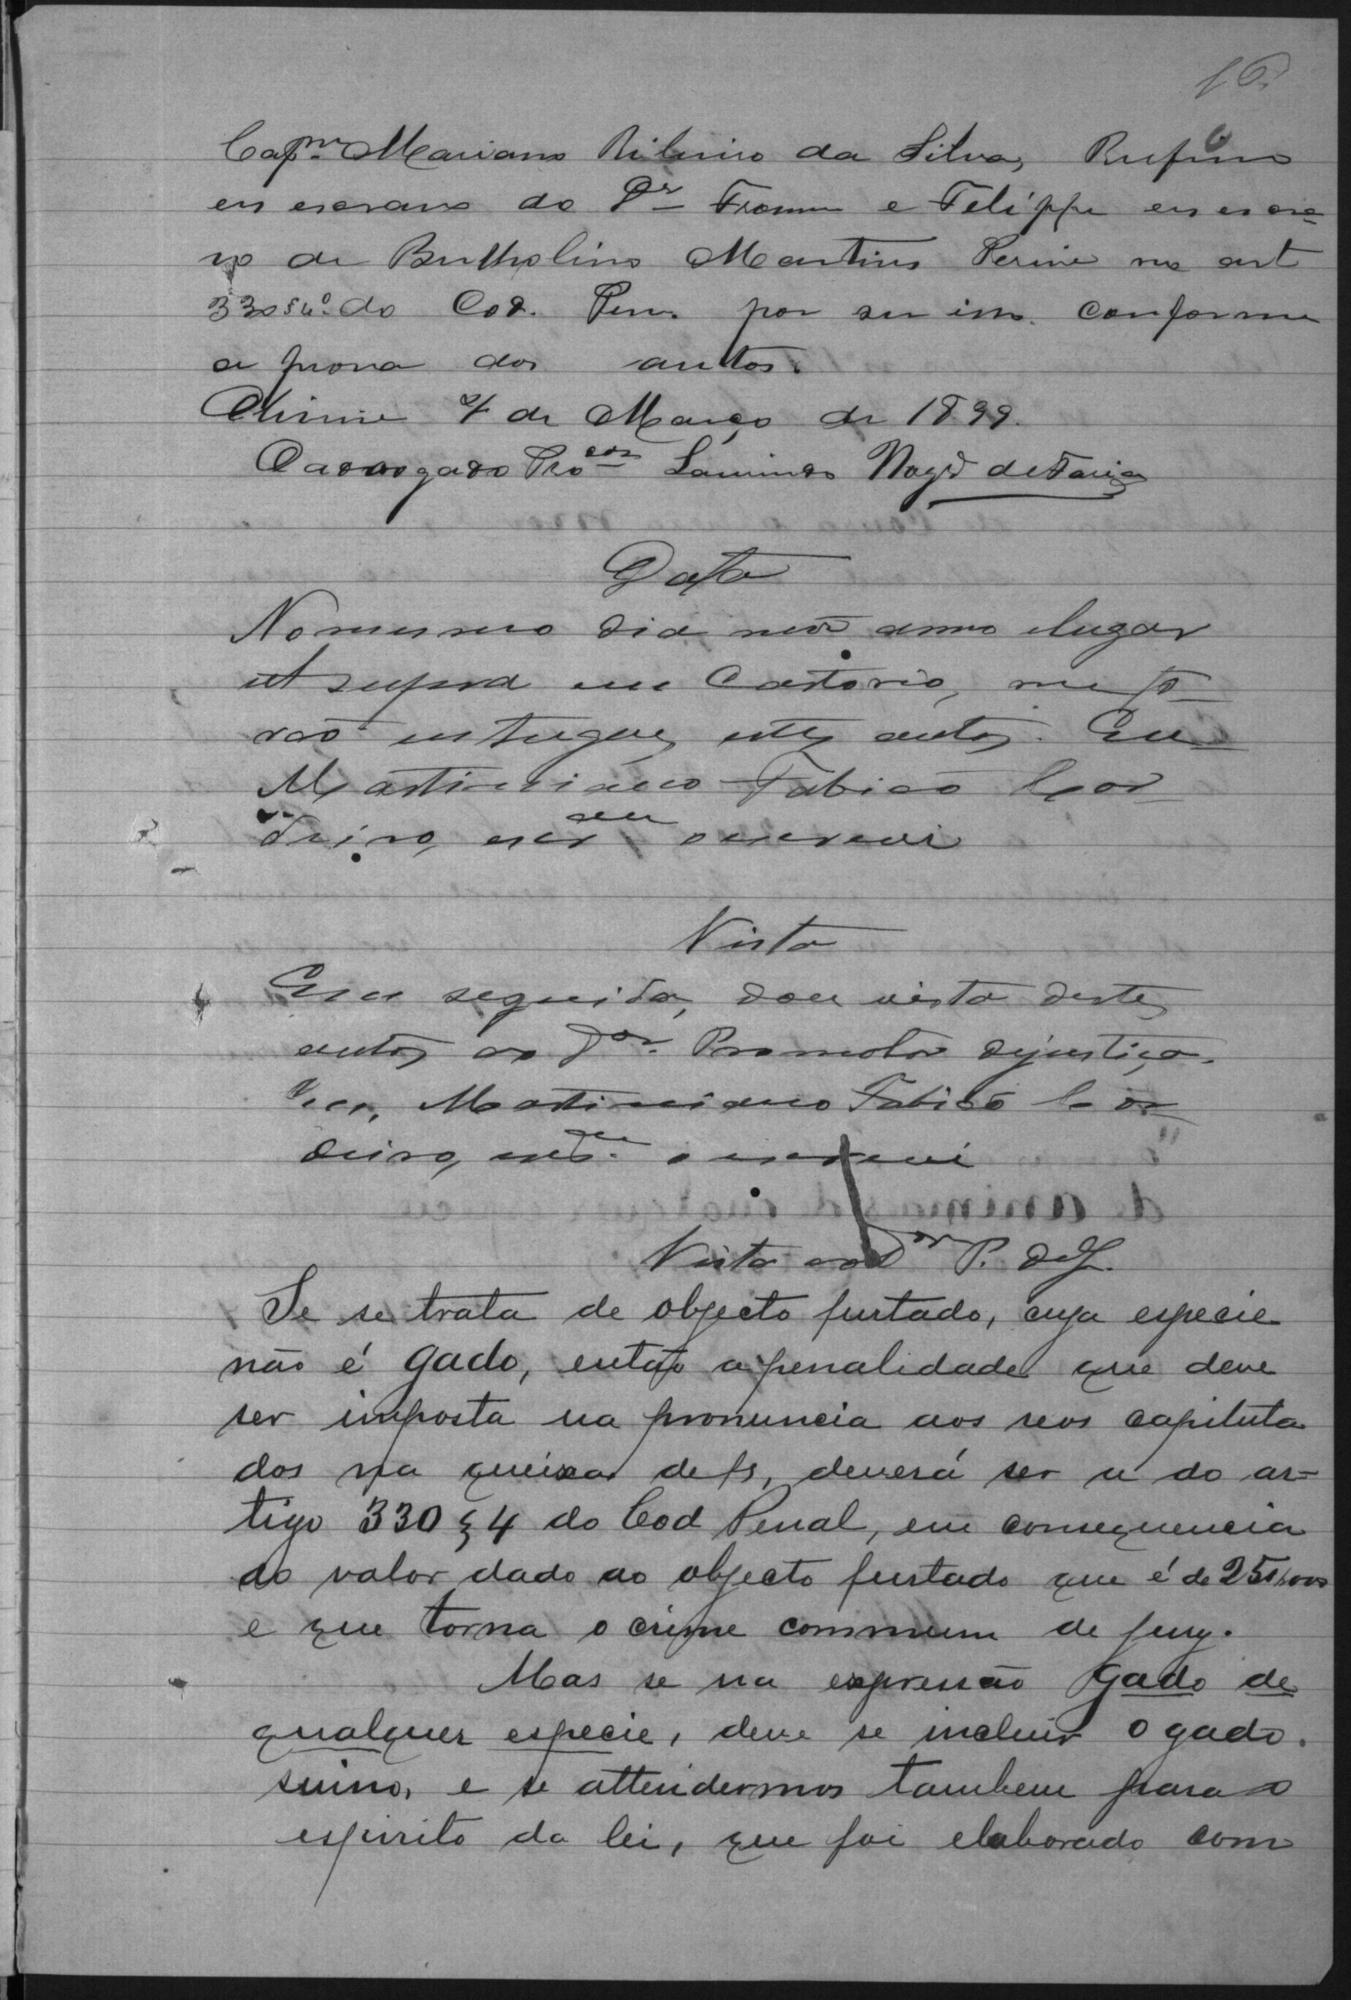 16
Cap.m Mariano Ribeiro da Silva, Rufino
ex escravo do Dr Fromm e Felippe ex escra-
vo de Bertholino Martins Perine no art
330 § 4º do Cod. Pen. por ser isso conforme
a prova dos autos.
7 de Março de 1899.
O advogado Pro.cor Laurindo Nog.ra de Faria
Data
No mesmo dia mez anno e lugar
ut supra em Cartorio, me fo-
rão entregues estes autos. Eu
Martiniano Fabião Cor-
deiro, escr.am o escrevi
Vista
Em seguida, dou vista destes
autos ao D.or Promotor dejustiça.
Eu, Martiniano Fabião Cor-
deiro, esc.am o escrevi
Vista ao D.or P. de J.
Se se trata de objecto furtado, cuja especie
não é gado, então a penalidade que deve
ser imposta na pronuncia aos reos capitula
dos na queixa de fs, deverá ser a do ar-
tigo 330 § 4 do Cod Penal, em consequencia
do valor dado ao objecto furtado que é de 250$000
e que torna o crime commum de jury.
Mas se na expressão gado de
qualquer especie, deve se incluir o gado
suino, e se attendermos tambem para o
espirito da lei, que foi elaborado com